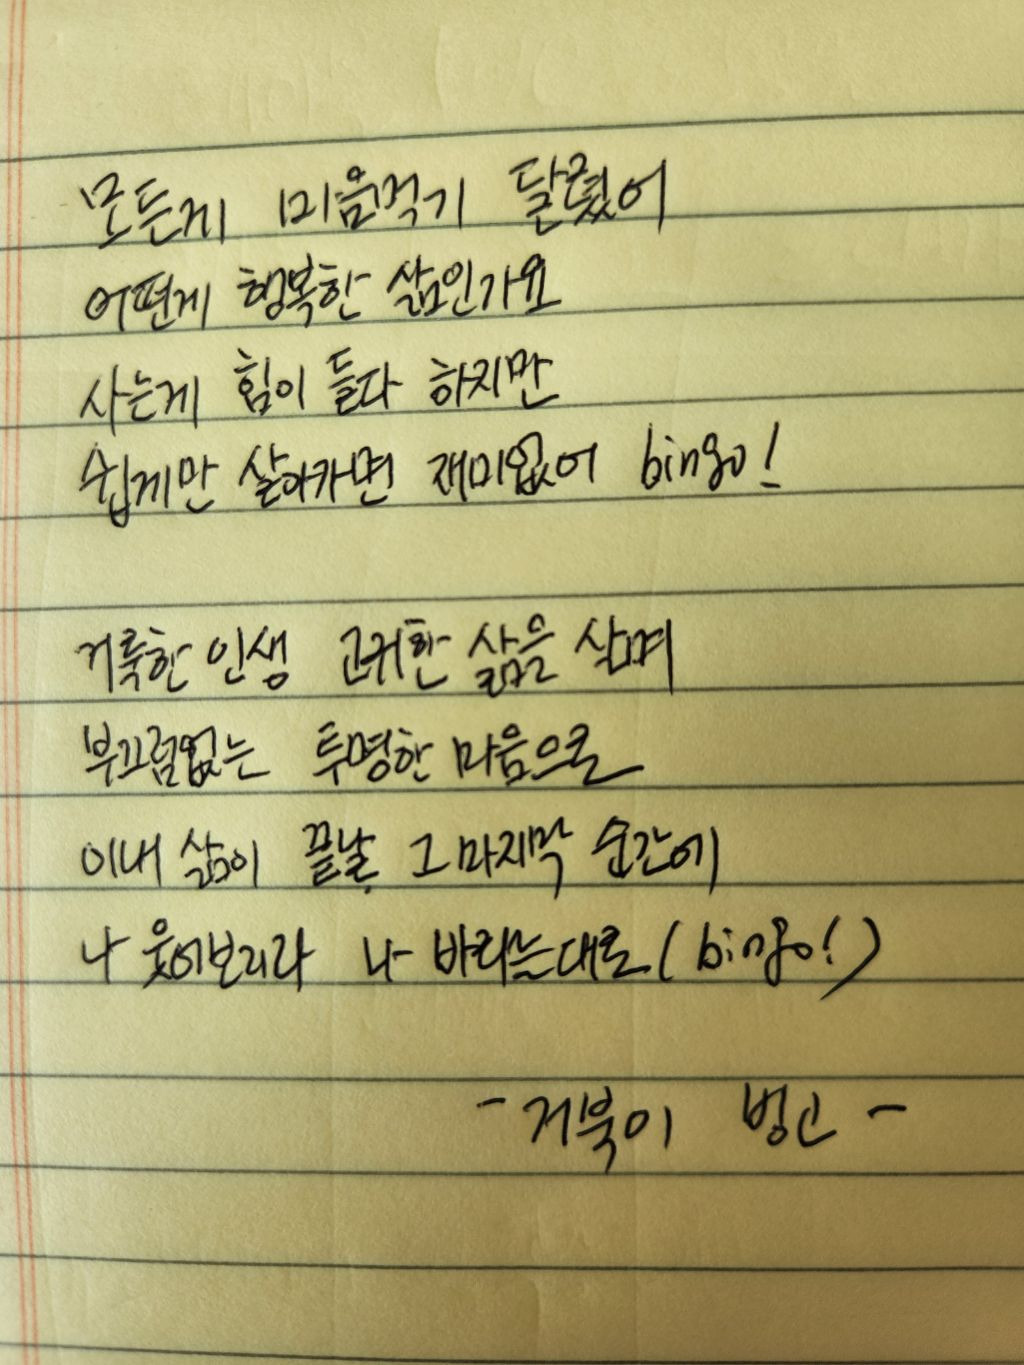 모든게 마음먹기 달렸어
어떤게 행복한 삶인가요
사는게 힘이 들다 하지만
쉽게만 살아가면 재미없어 bingo!
거룩한 인생 고귀한 삶을 살며
부끄럼없는 투명한 마음으로
이내 삶이 끝날 그 마지막 순간에
나 웃어보리라 나 바라는대로 (bingo!)
- 거북이 빙고 -